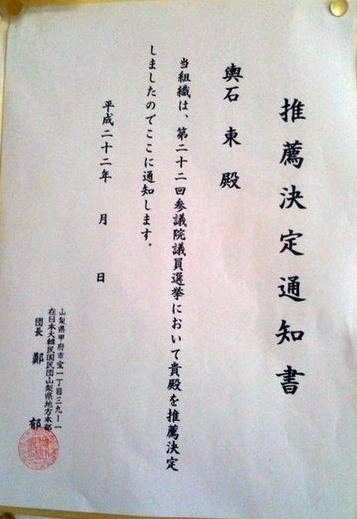 推薦決定通知書
輿石 東 殿
当組織は、第二十二回参議院議員選挙において貴殿を推薦決定
しましたのでここに通知します。
平成二十二年 月 日
山梨県甲府市宝一丁目三九ー一
在日本大韓民国民団山梨県地方本部
団長 鄭 郁